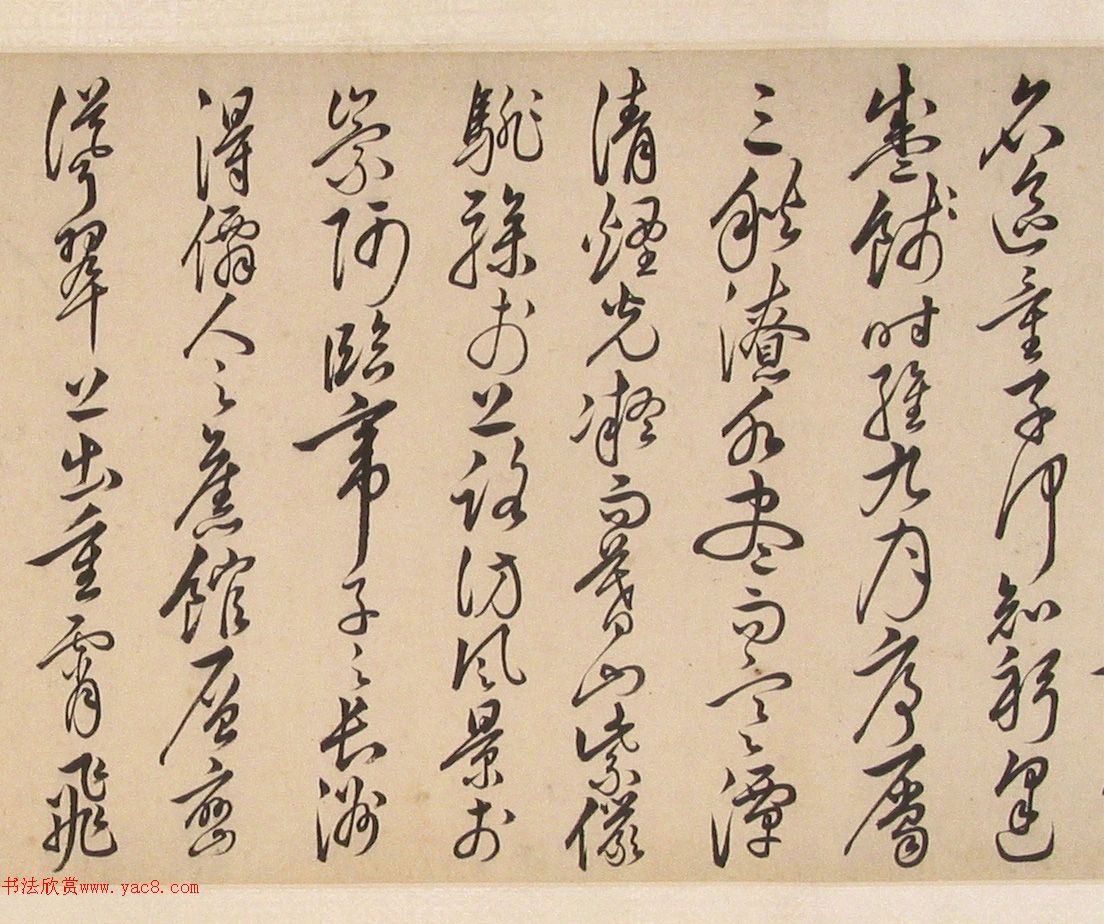 名區童子何知躬逢
盛餞時維九月序屬
三秋潦水盡而寒潭
清煙光凝而暮山紫儼
騑驂於上路訪風景於
崇阿臨帝子之長洲
得僊人之舊館層巒
聳翠上出重霄飛
书法欣赏www.yac8.com